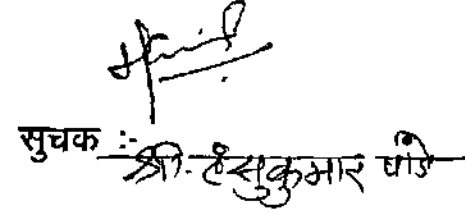 सुचक :-
श्री. हंसुकुमार पांडे